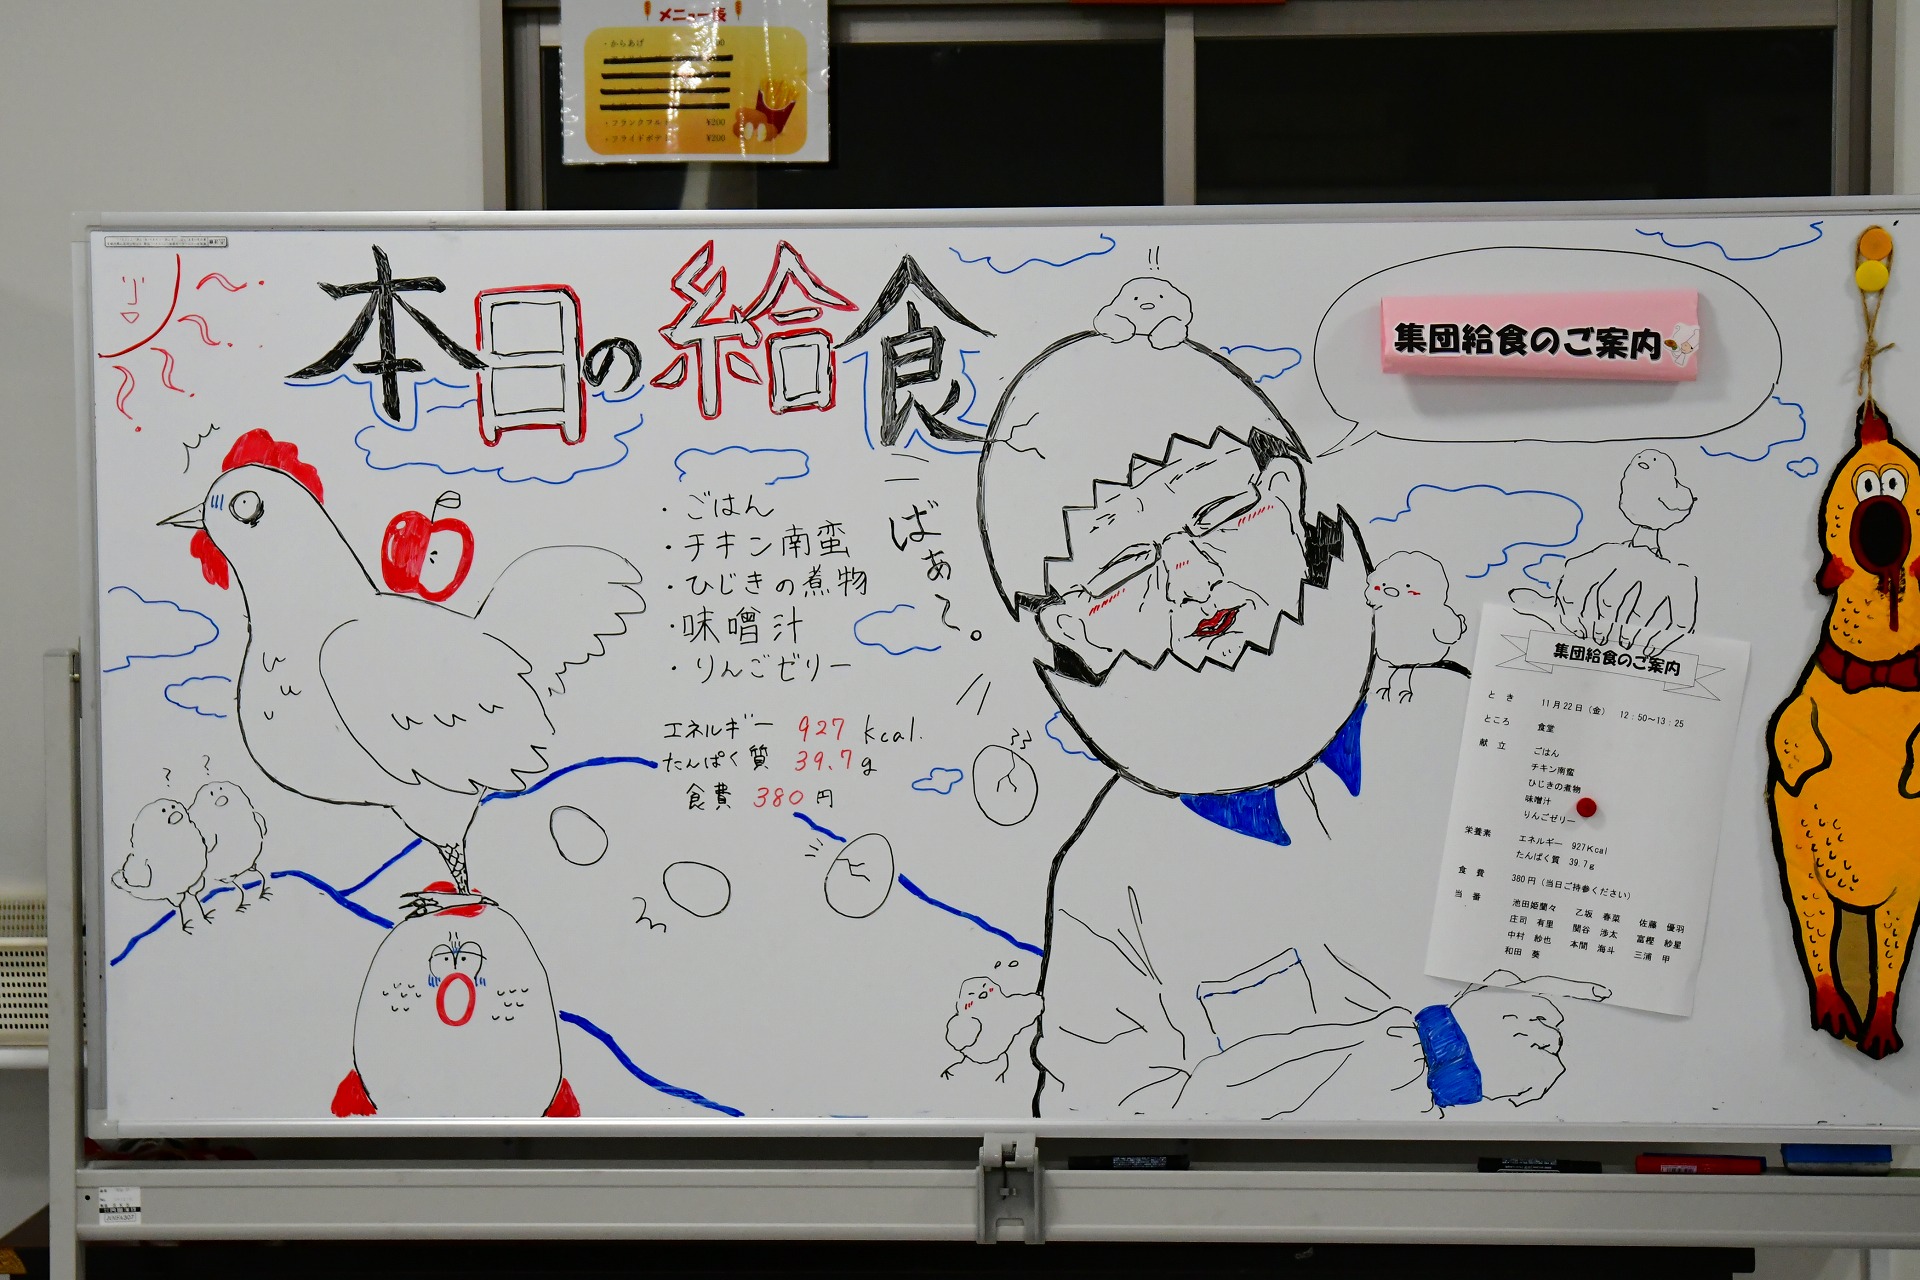 メニュー表
・からあげ
・フランクフルト ¥200
・フライドポテト ¥200
本日の給食
・ごはん
・チキン南蛮
・ひじきの煮物
・味噌汁
・りんごゼリー
エネルギー 927 kcal.
たんぱく質 39.7g
食費 380円
ばぁ〜。
!!
? ?
集団給食のご案内
集団給食のご案内
とき 11月22日(金) 12:50~13:25
ところ 食堂
献立 ごはん
チキン南蛮
ひじきの煮物
味噌汁
りんごゼリー
栄養素 エネルギー 927Kcal
たんぱく質 39.7g
食費 380円(当日ご持参ください)
当番 池田姫蘭々 乙坂 春菜 佐藤 優羽
庄司 有里 関谷 渉太 富樫 紗星
中村 紗也 本間 海斗 三浦 甲
和田 葵